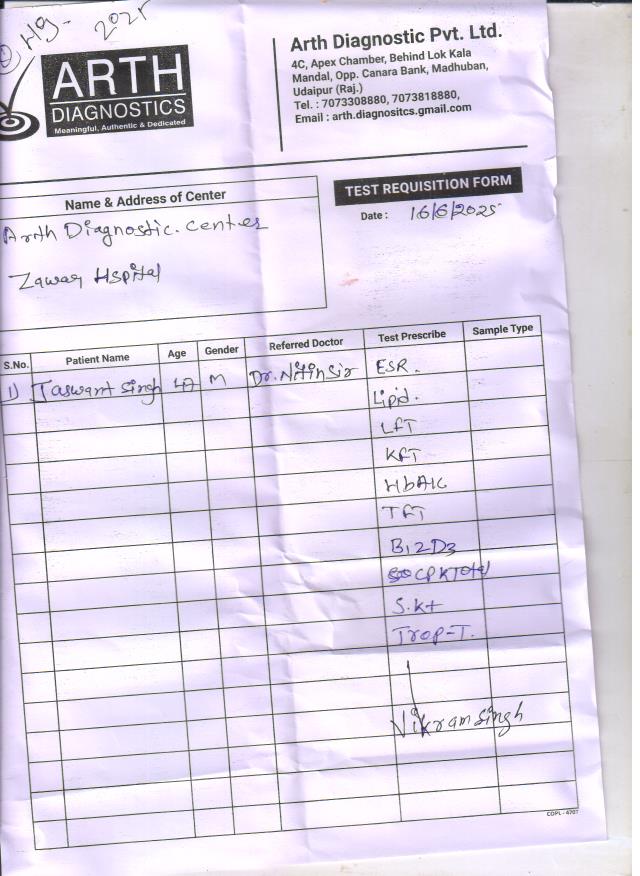 Hg- 2021
ARTH
DIAGNOSTICS
Meaningful, Authentic & Dedicated
Arth Diagnostic Pvt. Ltd.
4C, Apex Chamber, Behind Lok Kala
Mandal, Opp. Canara Bank, Madhuban,
Udaipur (Raj.)
Tel. : 7073308880, 7073818880,
Email : arth.diagnositcs.gmail.com
Name & Address of Center
Arth Diagnostic. center
Zawar Hspital
TEST REQUISITION FORM
Date : 16/6/2025
S.No. Patient Name Age Gender Referred Doctor Test Prescribe Sample Type
1) Jaswant Singh M Dr. Nitin Sir ESR.
Lipid.
LFT
KFT
HbA1C
TFT
B12D3
CPK Total
S.K+
Trop-T.
Vikram Singh
COPL - 4707